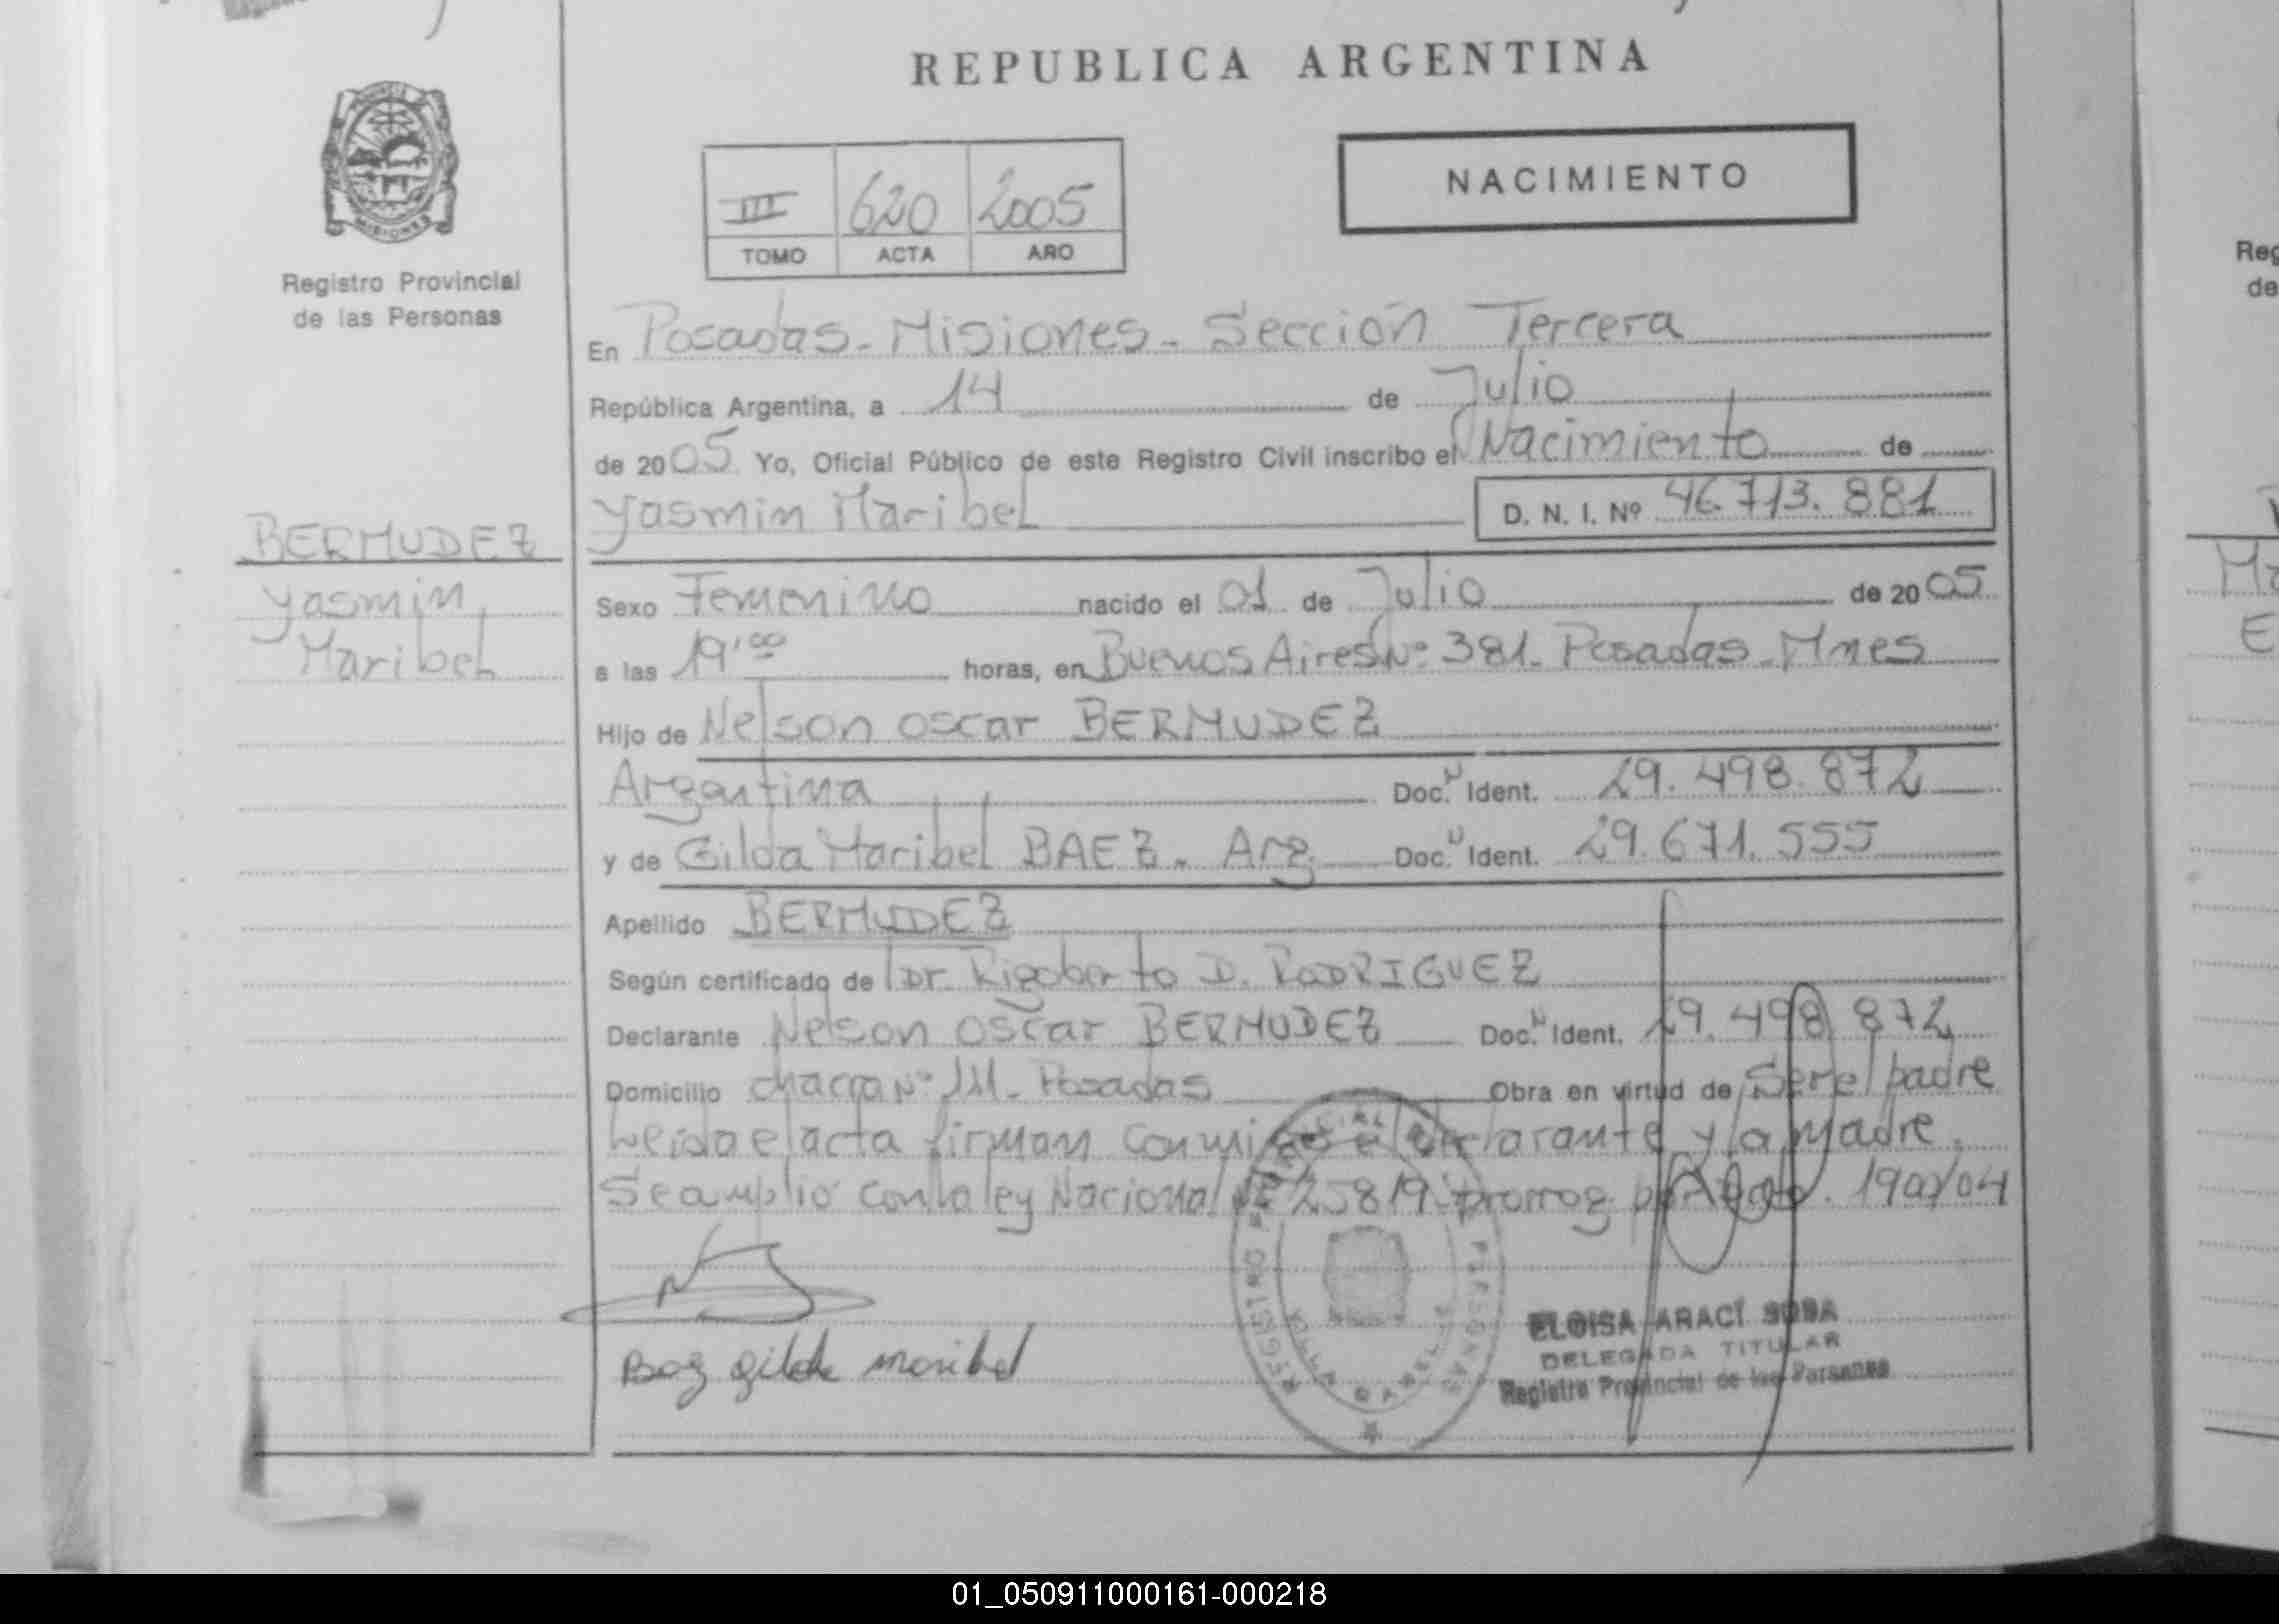 REPUBLICA ARGENTINA
NACIMIENTO
III 620 2005
TOMO ACTA AÑO
PROVINCIA DE
MISIONES
Registro Provincial
de las Personas
En Posadas - Misiones - Sección Tercera
República Argentina, a 14 de Julio
de 2005 Yo, Oficial Público de este Registro Civil inscribo el Nacimiento de
Yasmin Maribel D. N. I. Nº 46.713.881
BERMUDEZ
Yasmin
Maribel
Sexo Femenino nacido el 01 de Julio de 2005
a las 19'00 horas, en Buenos Aires Nº 381. Posadas - Mnes
Hijo de Nelson Oscar BERMUDEZ
Argentina Doc.N Ident. 29.498.872
y de Gilda Maribel BAEZ. Arg Doc.N Ident. 29.671.555
Apellido BERMUDEZ
Según certificado de Dr. Rigoberto D. RODRIGUEZ
Declarante Nelson Oscar BERMUDEZ Doc.N Ident. 29.498.872
Domicilio chacra Nº 111 - Posadas Obra en virtud de Ser el padre
Leida el acta firman conmigo el declarante y la madre.
Se amplió con la ley Nacional Nº 25819 prorrog. por 190/04
Baz gilda maribel
REGISTRO PROVINCIAL DE LAS PERSONAS
ELOISA ARACÍ SOSA
DELEGADA TITULAR
Registro Provincial de las Personas
Reg
de
01_050911000161-000218